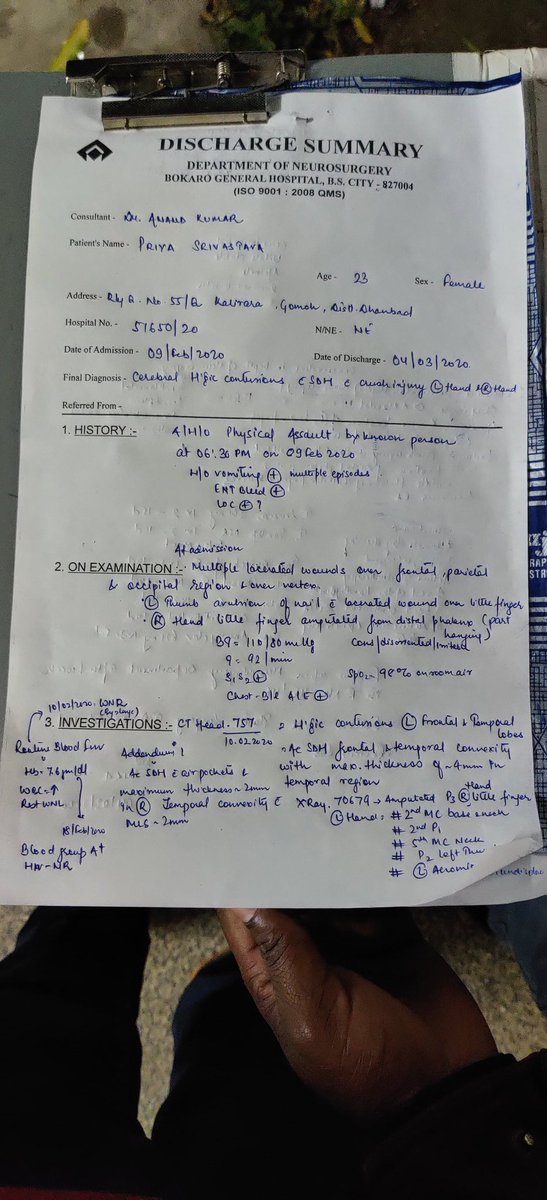 DISCHARGE SUMMARY
DEPARTMENT OF NEUROSURGERY
BOKARO GENERAL HOSPITAL, B.S. CITY - 827004
(ISO 9001 : 2008 QMS)
Consultant - Dr. ANAND KUMAR
Patient's Name - PRIYA SRIVASTAVA
Age - 23 Sex - Female
Address - Rly Q. No. 55/ , Gomoh, Distt. Dhanbad
Hospital No. - 57650/20 N/NE - NE
Date of Admission - 09/Feb/2020 Date of Discharge - 04/03/2020
Final Diagnosis - Cerebral H'gic contusions c̄ SDH c̄ crush injury Ⓛ Hand & Ⓡ Hand
Referred From -
1. HISTORY :- A/H/o Physical Assault by known person
at 06:30 PM on 09 Feb 2020
H/O vomiting ⊕ multiple episodes
ENT Bleed ⊕
LOC ⊕ ?
At admission
2. ON EXAMINATION :- Multiple lacerated wounds over frontal, parietal
& occipital region & over vertex.
Ⓛ Thumb avulsion of nail c̄ lacerated wound over little finger
Ⓡ Hand little finger amputated from distal phalanx (part hanging)
BP = 110/80 mmHg Cons/disoriented/
= 92/min
S₁S₂ ⊕ SpO₂ - 98% on room air
Chest - B/L A/E ⊕
10/02/2020. WNR
3. INVESTIGATIONS :- CT Head - 757 H'gic contusions Ⓛ Frontal & Temporal lobes
10.02.2020
Ac SDH frontal & temporal convexity
with max. thickness of ~4mm in
temporal region
Routine Blood
Hb - 7.6 gm/dl
WBC = ↑
Rest WNL
18/Feb/2020
Blood group A+
HIV - NR
Addendum :
Ac SDH c̄ air pockets &
maximum thickness ~ 2mm
in Ⓡ Temporal convexity c̄
MLS ~ 2mm
XRay. 70679 → Amputated P₃ Ⓡ Hand little finger
Ⓛ Hand : # 2nd MC base & neck
# 2nd P₁
# 5th MC Neck
# P₂ left
# Ⓛ